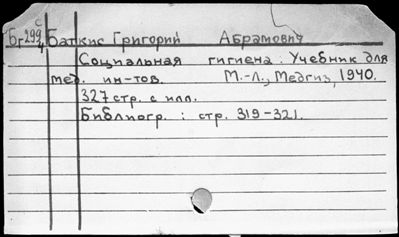 с
Бг299 Баткис Григорий Абрамович
4
Социальная гигиена : Учебник для
мед. ин-тов. М.-Л., Медгиз, 1940.
327 стр. с илл.
Библиогр. : стр. 319-321.